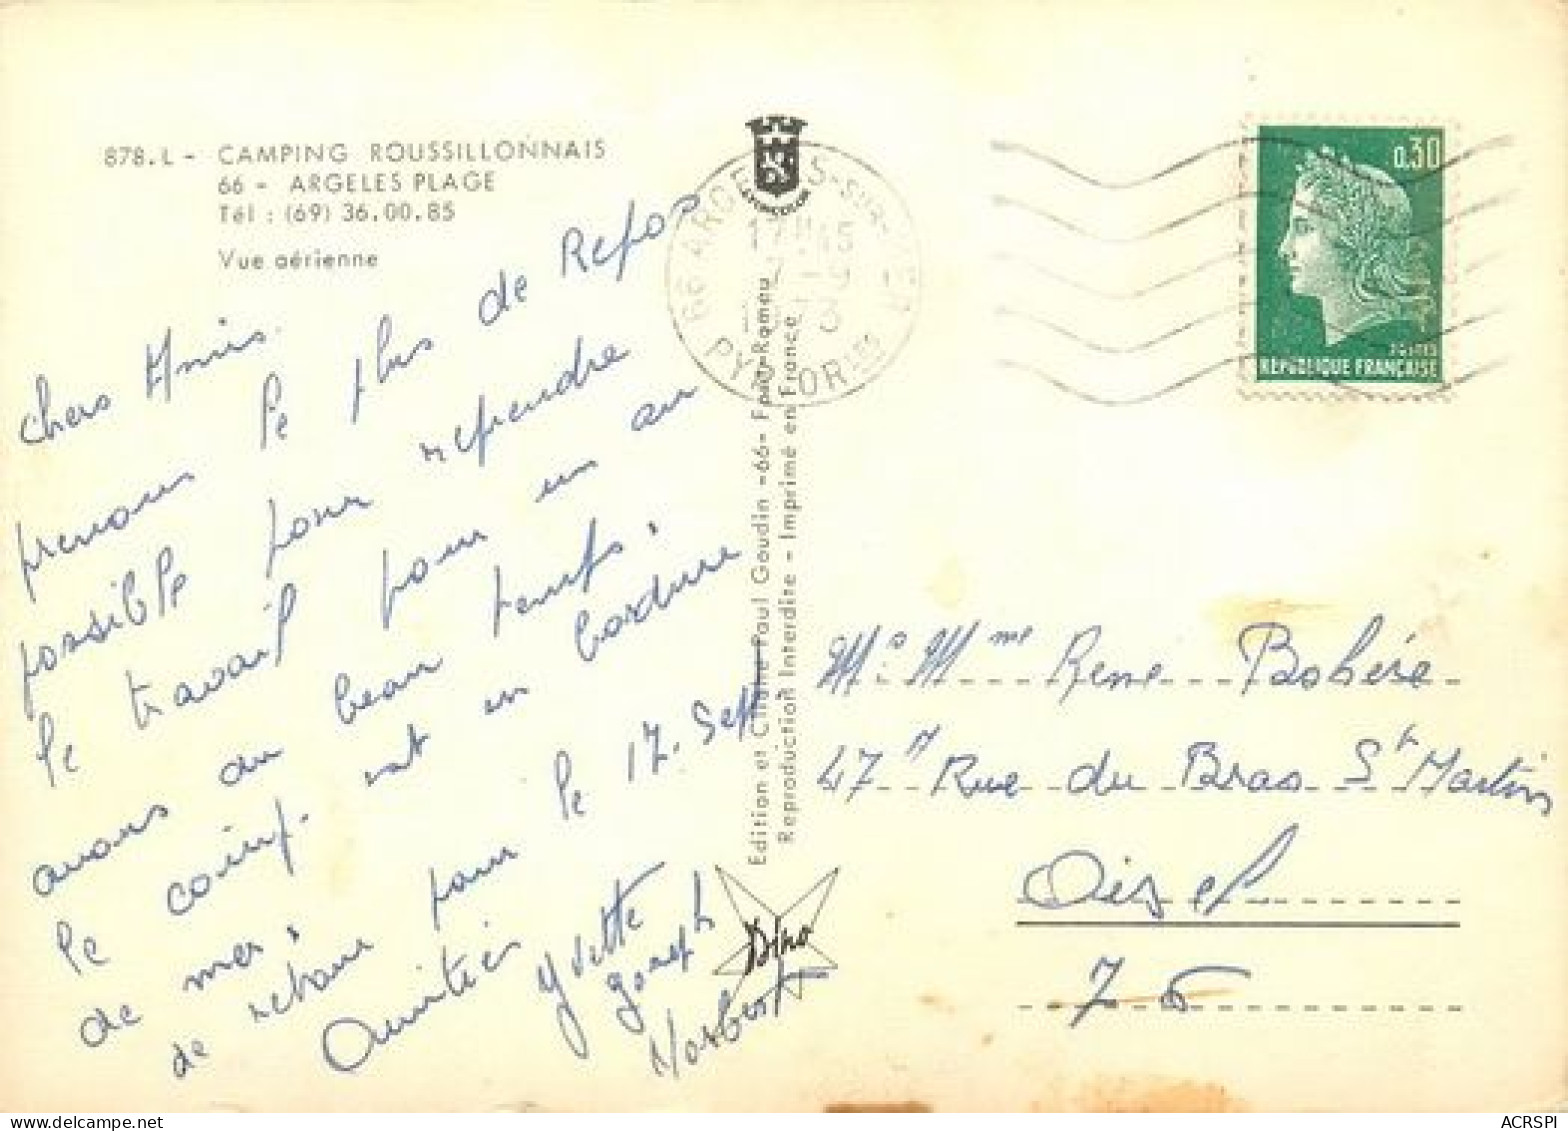 878.L - CAMPING ROUSSILLONNAIS
66 - ARGELES PLAGE
Tél : (69) 36.00.85
Vue aérienne
chers Amis.
prenons le plus de Repos
possible pour reprendre
le travail pour un an
avons du beau temps.
le camp. est en bordure
de mer.
de retour pour le 17. Sept
Amitiés
Yvette
Joseph
Norbert
66 ARGELES-SUR-MER
PYR.-ORles
Edition et Cliché Paul Goudin -66- Font-Romeu
Reproduction Interdite - Imprimé en France
Dino
0,30
POSTES
REPUBLIQUE FRANÇAISE
Mr. Mme Rene Bohère
47 Rue du Bras St Martin
Oissel
76
ACRSPI